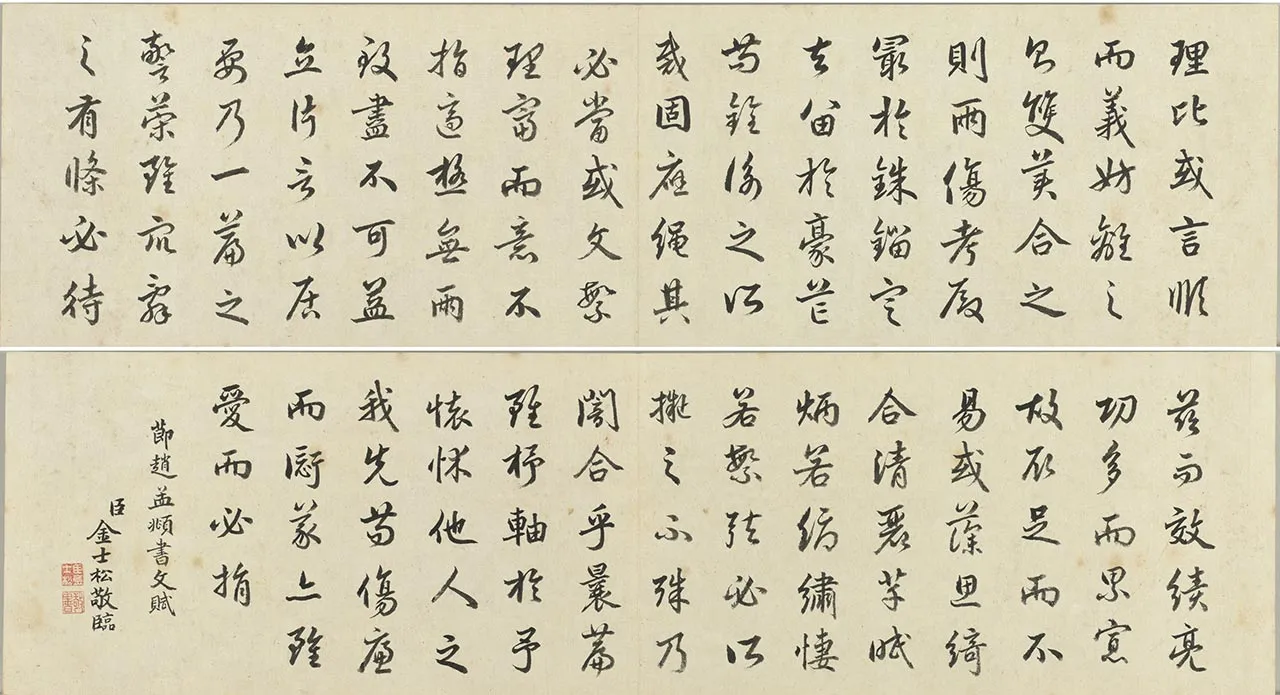 理比或言順
而義妨離之
則雙美合之
則兩傷考殿
最於銖錙定
去留於豪芒
苟銓衡之所
裁固應繩其
必當或文繁
理富而意不
指適極無兩
致盡不可益
立片言以居
要乃一篇之
警策雖眾辭
之有條必待
茲而效績亮
功多而累寡
故取足而不
易或藻思綺
合清麗芊眠
炳若縟繡悽
若繁弦必所
擬之不殊乃
闇合乎曩篇
雖杼軸於予
懷怵他人之
我先苟傷廉
而愆義亦雖
愛而必捐
節趙孟頫書文賦
臣金士松敬臨